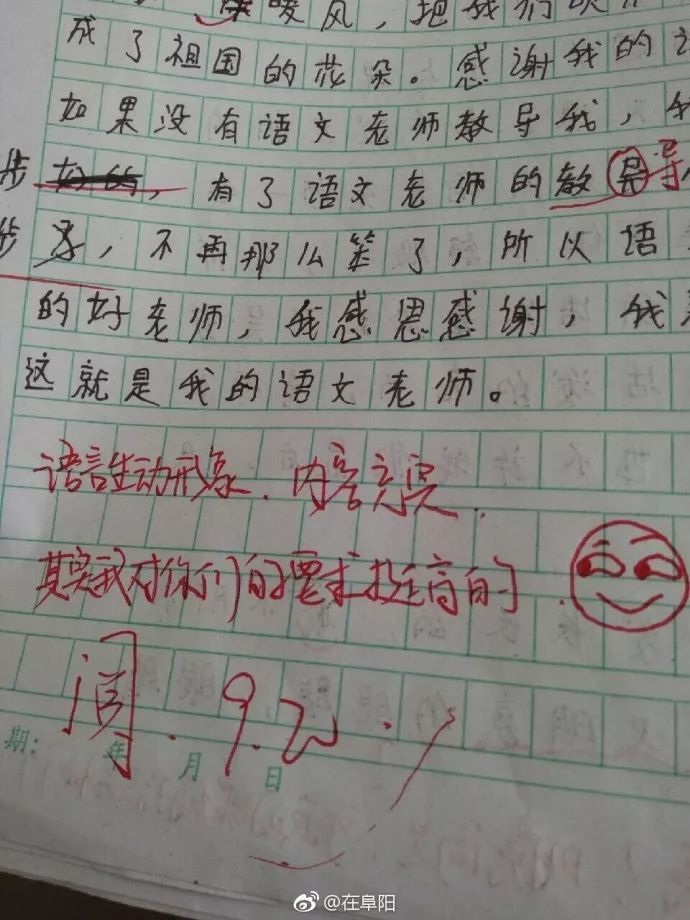 暖风，把我们吹
成了祖国的花朵。感谢我的
如果没有语文老师教导我，我
步 ，有了语文老师的教导
步 ，不再那么笨了，所以语
的好老师，我感恩感谢，我
这就是我的语文老师。
语言生动形象．内容充实．
其实我对你们的要求挺高的．
阅．9.20．
期： 年 月 日
@在阜阳